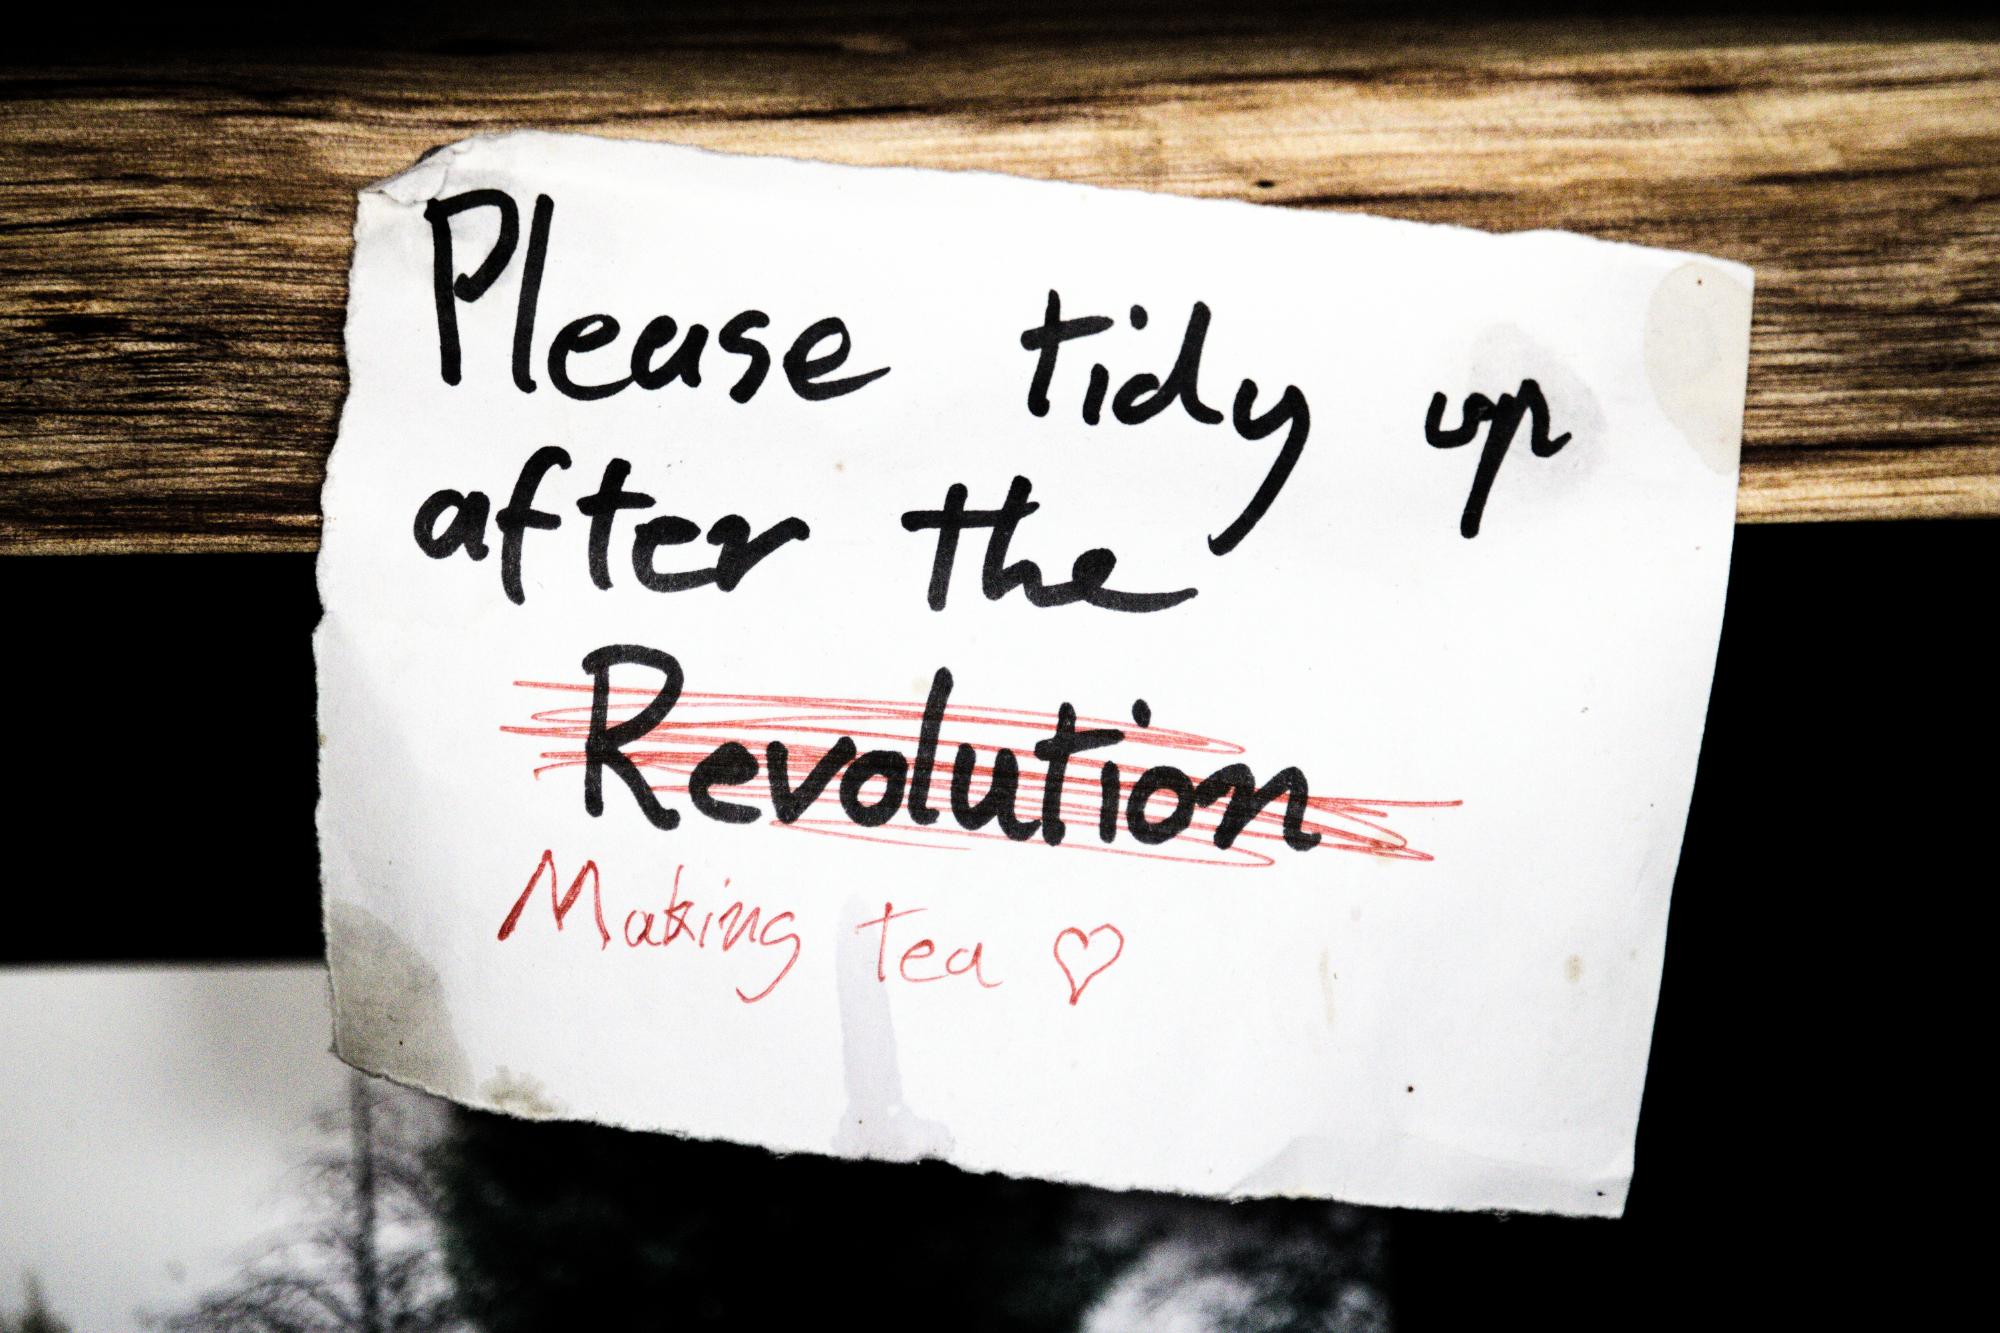 Please tidy up
after the
Revolution
Making tea ♡